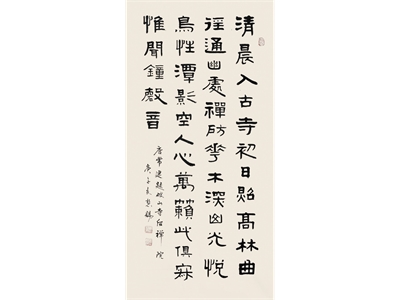 清晨入古寺初日照高林曲
徑通幽處禪房花木深山光悅
鳥性潭影空人心萬籟此俱寂
惟聞鐘磬音
唐常建題破山寺后禪院
庚子